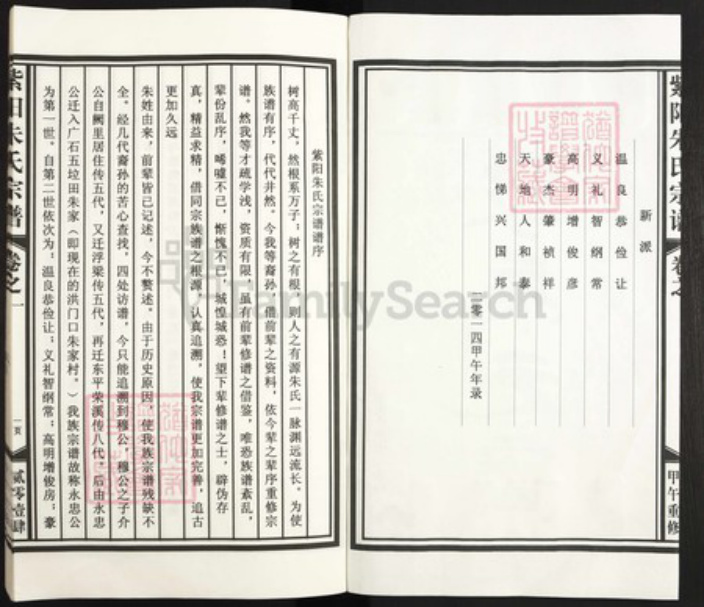 紫阳朱氏宗谱
卷之一
甲午重修
新派
温良恭俭让
义礼智纲常
高明增俊彦
豪杰肇祯祥
天地人和泰
忠悌兴国邦
二零一四甲午年录
紫阳朱氏宗谱谱序
树高千丈，然根系万子；树之有根，则人之有源朱氏一脉渊远流长。为使
族谱有序，代代井然。今我等裔孙，借前辈之资料，依今辈之辈序重修宗
谱。然我等才疏学浅，资质有限，虽有前辈修谱之借鉴，唯恐族谱紊乱，
辈份乱序，唏嘘不已，惭愧不已，诚惶诚恐！望下辈修谱之士，辟伪存
真，精益求精，借同宗族谱之根源，认真追溯，使我宗谱更加完善，追古
更加久远
朱姓由来，前辈皆已记述，今不赘述。由于历史原因，使我族宗谱残缺不
全。经几代裔孙的苦心查找，四处访谱，今只能追溯到穆公，穆公之子介
公自阙里居住传五代，又迁浮梁传五代，再迁东平荣溪传八代，后由永忠
公迁入广石五垃田朱家（即现在的洪门口朱家村。）我族宗谱故称永忠公
为第一世。自第二世依次为：温良恭俭让；义礼智纲常；高明增俊房；豪
紫阳朱氏宗谱
卷之一
一页
贰零壹肆
FamilySearch